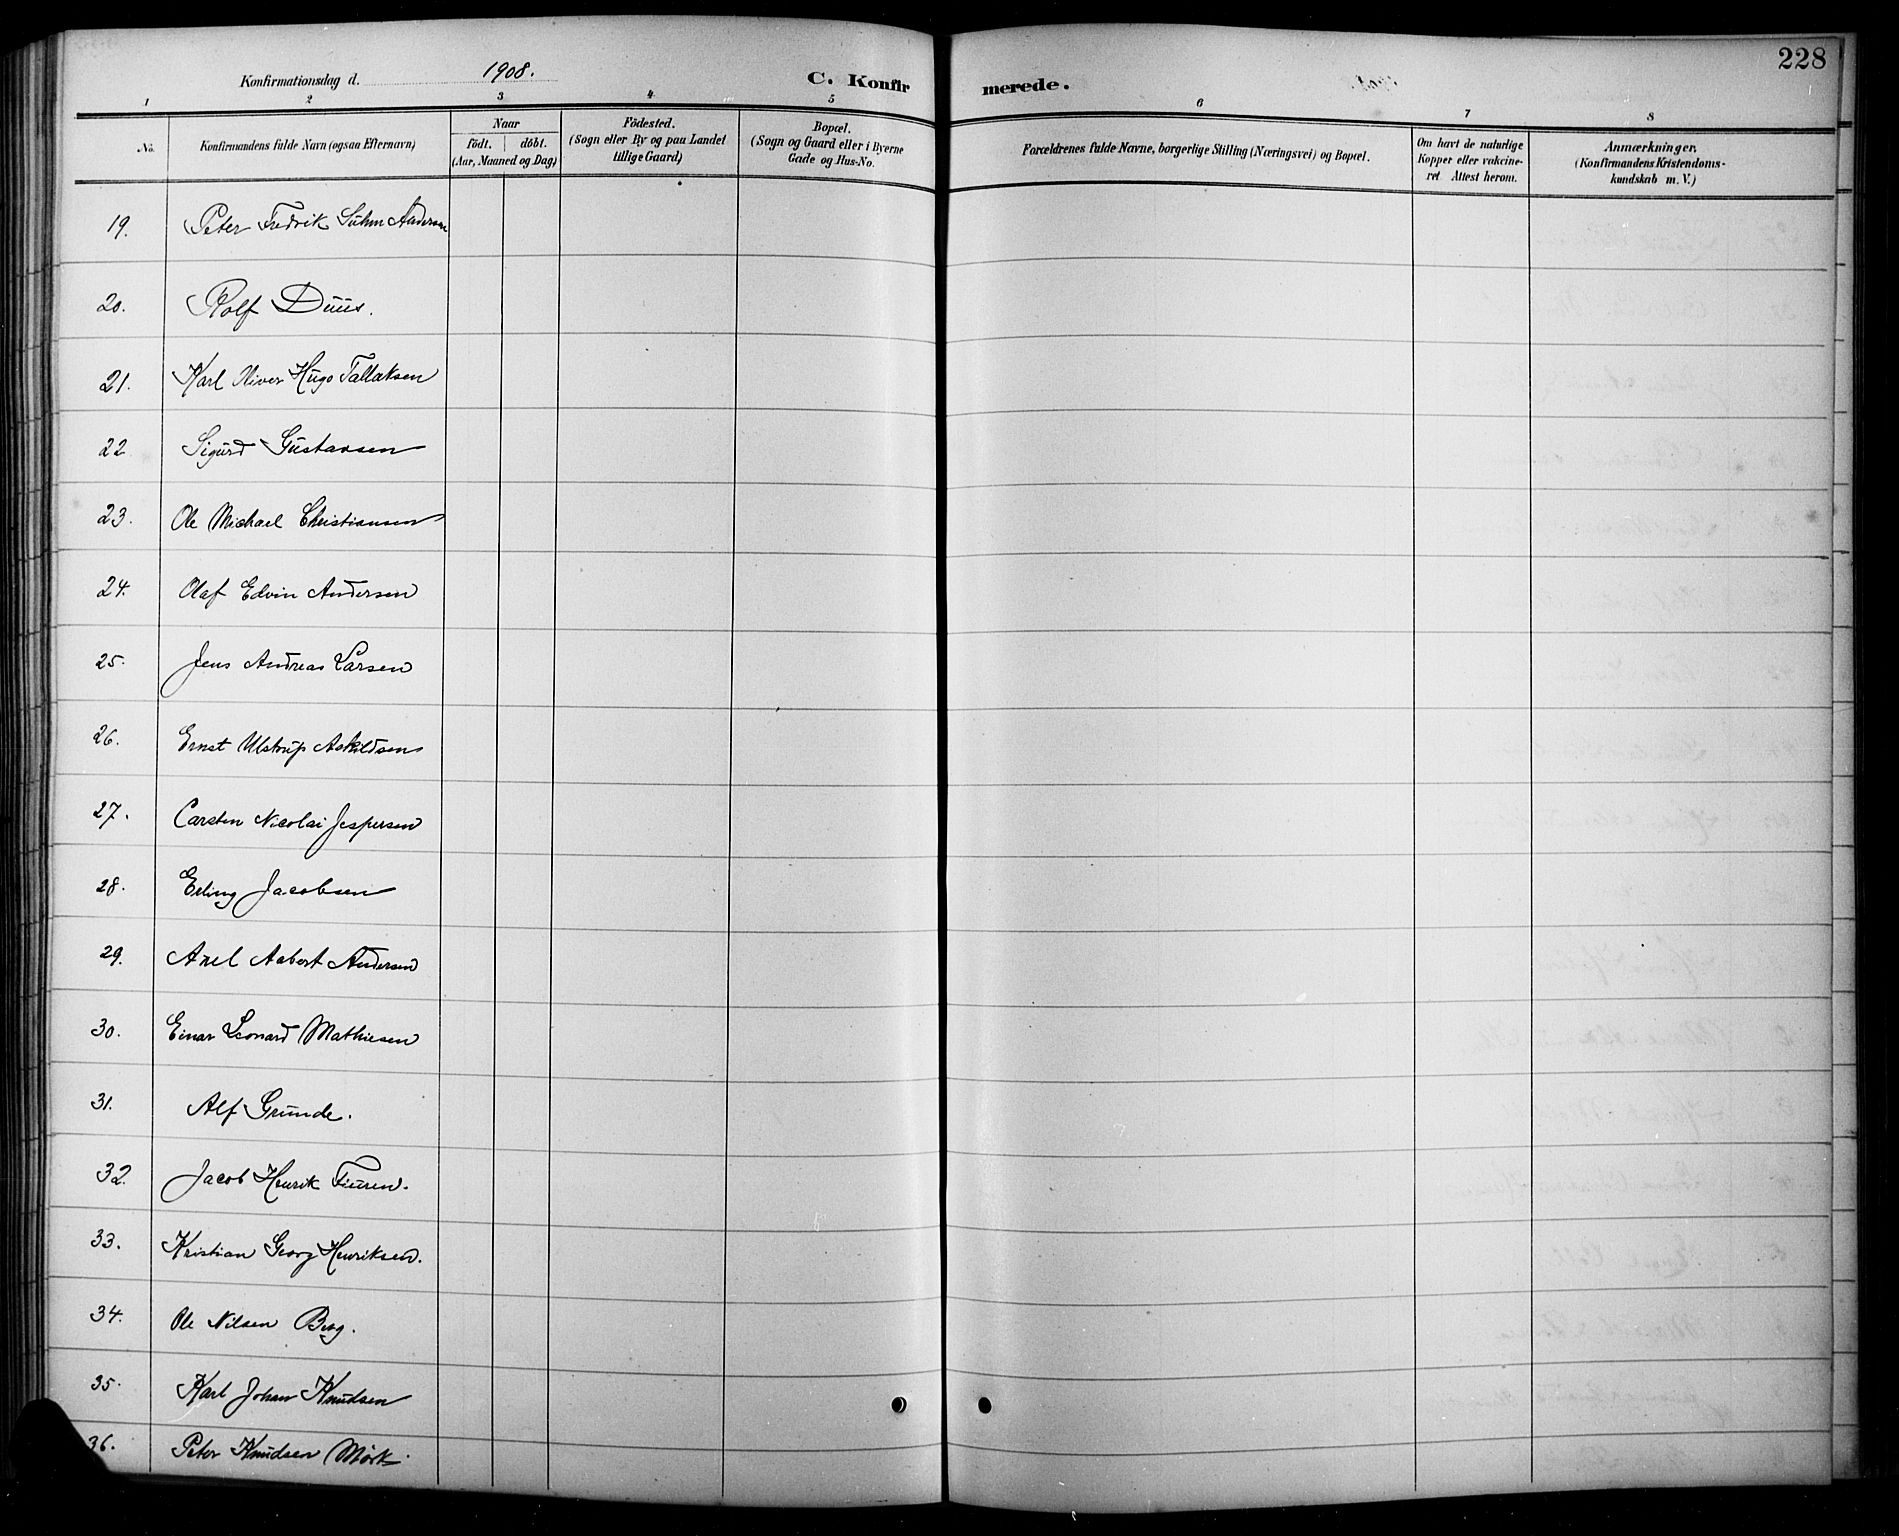 228
Konfirmationsdag d. 1908.
C. Konfirmerede.
1 2 3 4 5 6 7 8
No.
Konfirmandens fulde Navn (ogsaa Efternavn)
Naar
født. døbt.
(Aar, Maaned og Dag)
Fødested.
(Sogn eller By og paa Landet
tillige Gaard)
Bopæl.
(Sogn og Gaard eller i Byerne
Gade og Hus-No.
Forældrenes fulde Navne, borgerlige Stilling (Næringsvei) og Bopæl.
Om havt de naturlige
Kopper eller vakcine-
ret Attest herom.
Anmærkninger.
(Konfirmandens Kristendoms-
kundskab m. V.)
19. Peter Fredrik Suhm Andersen
20. Rolf Duus.
21. Karl Oliver Hugo Tallaksen
22 Sigurd Gustavsen
23. Ole Michael Christiansen
24. Olaf Edvin Andersen
25. Jens Andreas Larsen
26. Ernst Ulstrup Askildsen
27. Carsten Nicolai Jespersen
28. Erling Jacobsen
29. Axel Aabert Andersen
30. Einar Leonard Mathiesen
31. Alf Grunde.
32. Jacob Henrik
33. Kristian Georg Henriksen.
34. Ole Nilsen Berg.
35. Karl Johan Knudsen
36. Peter Knudsen Mörk.